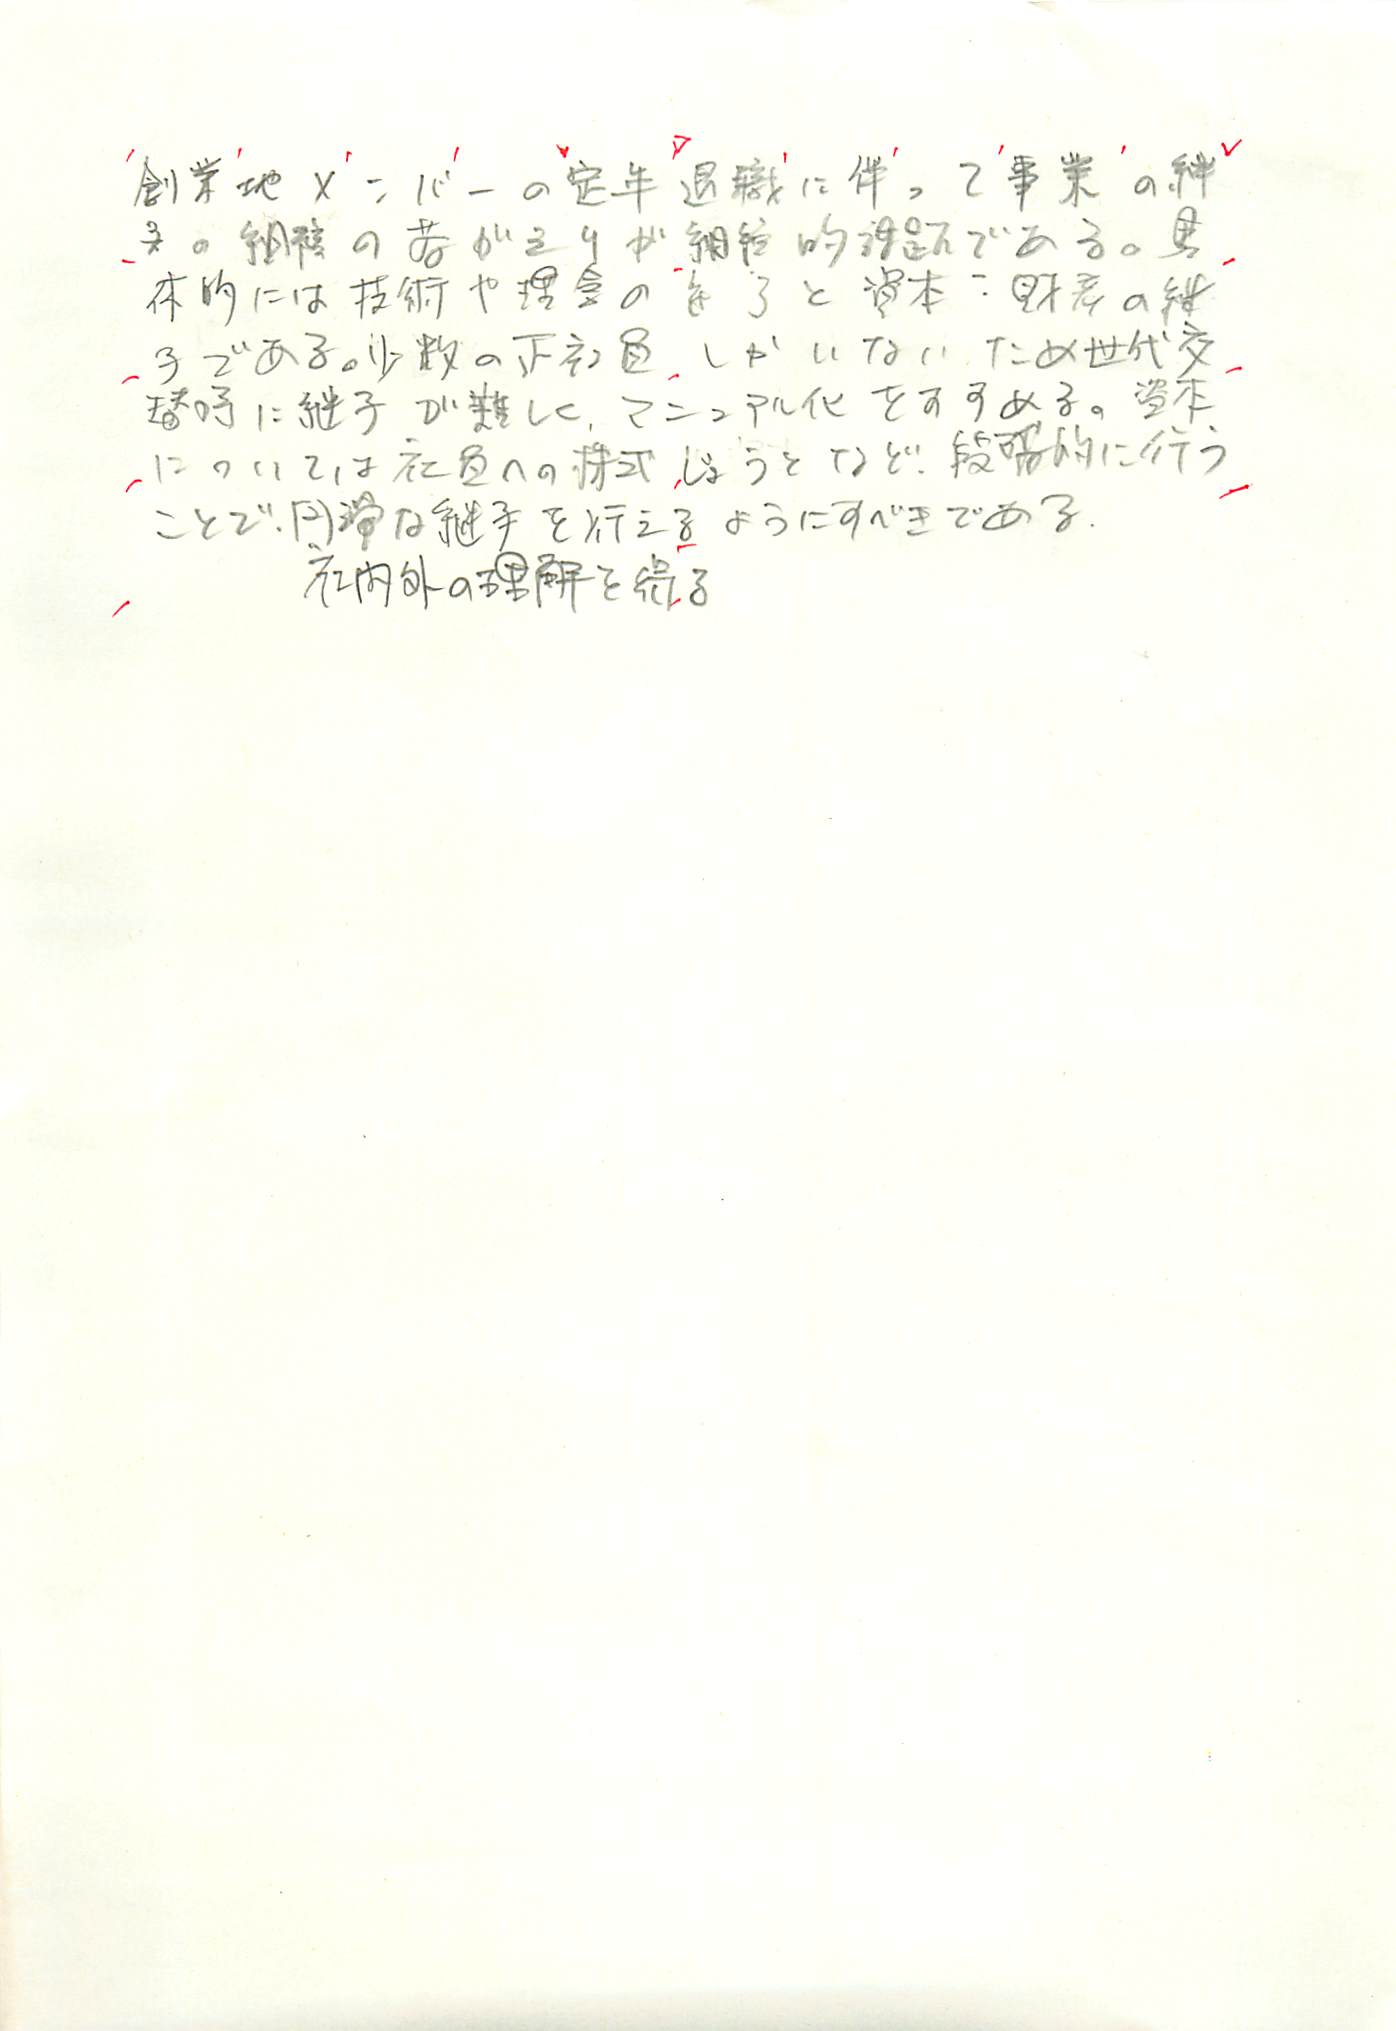 創業地メンバーの定年退職に伴って事業の継
承の組織の若がえりが組織的課題である。具
体的には技術や理念の 了と資本・財産の継
子である。少数の正社員しかいないため世代交
替時に継子が難しく、マニュアル化をすすめる。資本
については社員への株式じょうとなど、段階的に行う
ことで、円滑な継手を行えるようにすべきである。
社内外の理解を得る